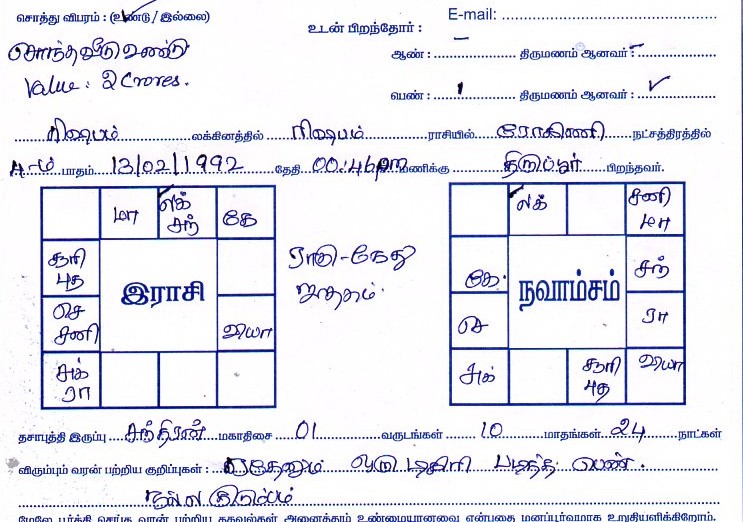 சொத்து விபரம் : (உண்டு/இல்லை)
சொந்த வீடு உண்டு
Value : 2 Crores.
E-mail:
உடன் பிறந்தோர் :
ஆண் : – திருமணம் ஆனவர் : –
பெண் : 1 திருமணம் ஆனவர் : ✓
ரிஷபம் லக்கினத்தில் ரிஷபம் ராசியில் ரோகிணி நட்சத்திரத்தில்
4-ம் பாதம் 13/02/1992 தேதி 00:46pm மணிக்கு திருப்பூர் பிறந்தவர்.
மா லக் சந் கே
சூரி புத
செ சனி
வியா
சுக் ரா
இராசி
ராகு - கேது
ஜாதகம்.
லக் சனி மா
கே. சந்
செ ரா
சுக் சூரி புத வியா
நவாம்சம்
தசாபுத்தி இருப்பு சந்திரன் மகாதிசை 01 வருடங்கள் 10 மாதங்கள் 24 நாட்கள்
விரும்பும் வரன் பற்றிய குறிப்புகள் : ஏதேனும் ஒரு டிகிரி படித்த பெண்.
நல்ல குடும்பம்
மேலே பூர்த்தி செய்த வரன் பற்றிய தகவல்கள் அனைத்தும் உண்மையானவை என்பதை மனப்பூர்வமாக உறுதியளிக்கிறோம்.